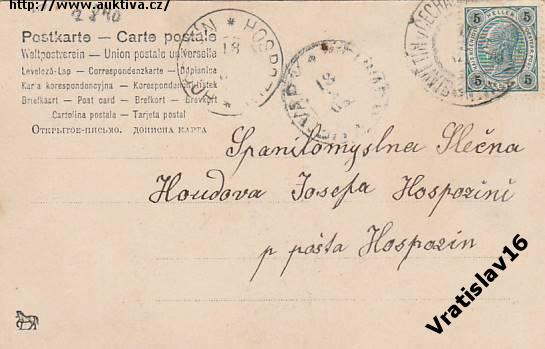 http://www.auktiva.cz/
2840
Postkarte — Carte postale
Weltpostverein — Union postale universelle
Levelező-Lap — Correspondenzkarte — Dopisnica
Karta korespondencyjna — Korespondenční lístek
Briefkaart — Post card — Brefkort — Brevkort
Cartolina postale — Tarjeta postal
ОТКРЫТОЕ ПИСЬМО. ДОПИСНА КАРТА
HOSPOZÍN
18
18
5 5
5 5
Spanilomyslna Slečna
Houdova Josefa Hospozíni
p pošta Hospozin
Vratislav16